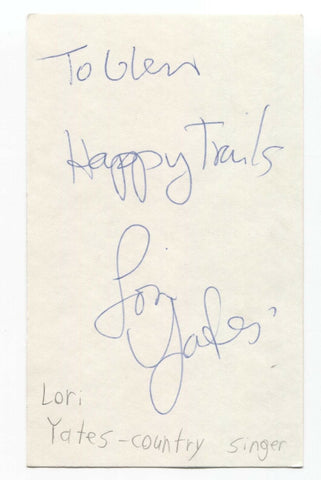 To Glen
Happy Trails
Lori
Yates
Lori
Yates - country singer